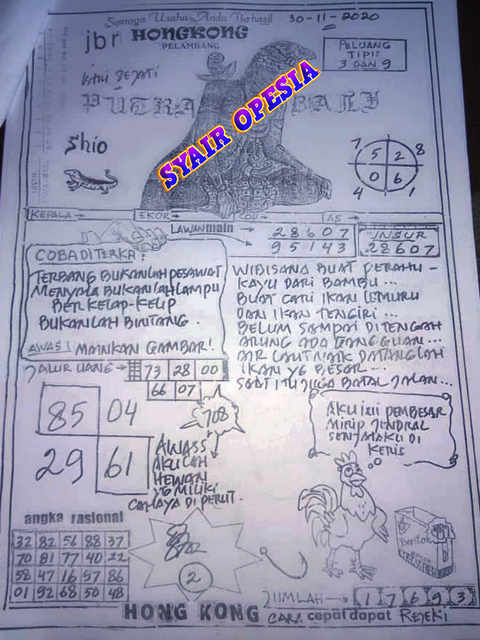 Semoga Usaha Anda Berhasil
30-11-2020
jbr HONGKONG
PELAMBANG
PELUANG
TIPIS
3 DAN 9
HARI SEJATI
PUTRA BALI
SYAIR OPESIA
Shio
7 5 2 8
4 0 6 1
KEPALA EKOR COP AS
LAWAN main
28607
95143
UNSUR
28607
COBA DITERKA:
TERBANG BUKANLAH PESAWAT
MENYALA BUKANLAH LAMPU
BER KELAP-KELIP
BUKANLAH BINTANG.
AWAS! MAINKAN GAMBAR!
WIBISANA BUAT PERAHU -
KAYU DARI BAMBU...
BUAT CARI IKAN LEMURU
DAN IKAN TENGIRI...
BELUM SAMPAI DITENGAH
ARUNG ADA GANGGUAN...
AIR LAUT NAIK DATANGLAH
IKAN YG BESAR...
SAAT ITU JUGA BATAL JALAN...
JALUR UANG 73 28 00
66 07
85 04
29 61
708
AWASS
AKULAH
HEWAN
YG MILIKI
CAHAYA DI PERUT.
AKU INI PEMBESAR
MIRIP JENDRAL
SENJATAKU DI
KERIS
angka rasional
32 82 56 88 37
70 81 77 40 22
58 47 16 57 86
01 92 68 50 48
2
JUMLAH 1 7 6 9 3
HONG KONG CARA cepat dapat REJEKI